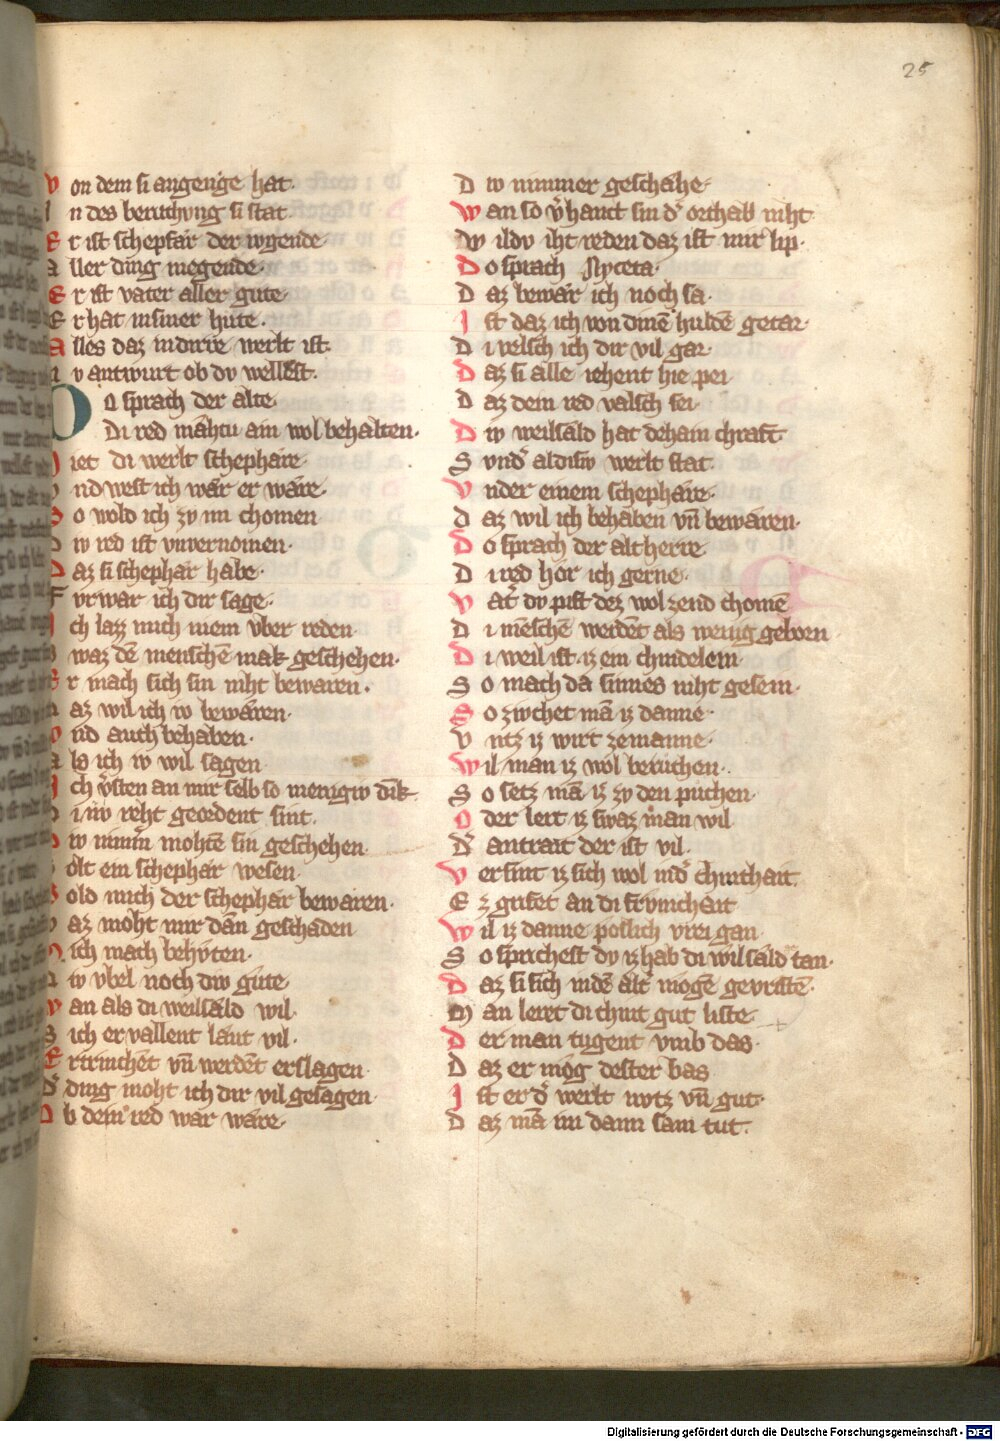 25
Von dem si angenge hat.
In des beruchvng si stat.
Er ist schepfar der wgende
aller ding megende.
Er ist vater aller gute
Er hat in siner hute.
Alles daz in dirre werlt ist.
nv antwurt ob dv wellest.
Do sprach der alte
Di red mahtu am wol behalten.
iet di werlt schephare
vnd west ich war er ware.
So wold ich zv im chomen
Div red ist vnvernomen.
Daz si schephar habe.
Fvrwar ich dir sage.
Ich lazz mich niem vber reden
Swaz dē menschē mak geschehen.
Er mach sich sin niht bewaren.
Daz wil ich iv bewaren.
vnd auch behaben.
als ich iv wil sagen
Ich v̾sten an mir selb so menigiv dink.
Di niv reht geordent sint.
Div nimm̾ mohtē sin geschehen.
Solt ein schephar wesen.
Sold mich der schephar bewaren.
Daz moht mir dan geschaden
Nich mach behvten.
Div vbel noch div gute
Wan als di weilsald wil.
Sich ervallent laut vil.
Ertrinchēt vn̄ werdēt erslagen
D̾ ding moht ich dir vil gesagen.
Ob dem red war ware.
Div nimmer geschahe.
Wan so v̾ hanct sin d̾ orthab niht
Wildv iht reden daz ist mir lip.
Do sprach Nyceta.
Daz bewar ich noch sa.
Ist daz ich von dinē huldē getar.
Di velsch ich dir vil gar.
Daz si alle iehent hie pei
Daz dem red valsch sei.
Div weilsald hat dehain chraft
Svnd̾ aldisiv werlt stat.
Vnder einem schephare.
daz wil ich behaben vn̄ bewaren.
Do sprach der altherre
Di red hor ich gerne.
Vat̾ dv pist dez wol zend chomē
Di mēschē werdēt als wenig geborn
Di weil ist iz ein chindelein
So mach da sinnes niht gesein.
So zivchet mā iz danne.
Vntz iz wirt ze manne.
Wil man iz wol beruchen.
So setz mā iz zv den puchen.
Oder lert iz swaz man wil
D̾ antrait der ist vil.
Versint iz sich wol in d̾ chinthait.
Ez gufet an di frvmchait
Wil iz danne poslich vrei gan
So sprichest dv iz hab di wilsald tan.
Daz si sich in dē alt̾ mogē gevristē.
Man leret di chint gut liste.
Der man tugent vmb das.
Daz er mog dester bas
Ist er d̾ werlt nvtz vn̄ gut.
Daz mā im dann sam tut.
Digitalisierung gefördert durch die Deutsche Forschungsgemeinschaft - DFG